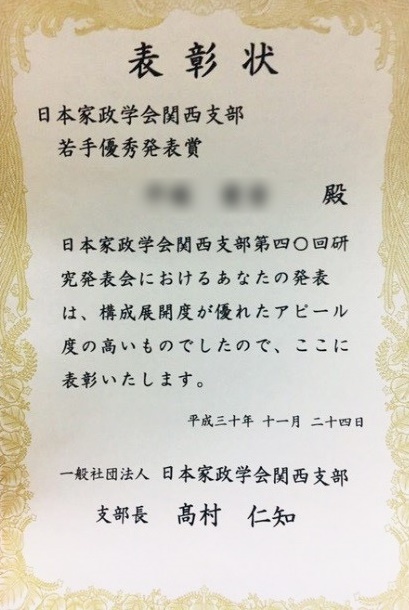 表彰状
日本家政学会関西支部
若手優秀発表賞
殿
日本家政学会関西支部第四〇回研
究発表会におけるあなたの発表
は、構成展開度が優れたアピール
度の高いものでしたので、ここに
表彰いたします。
平成三十年 十一月 二十四日
一般社団法人 日本家政学会関西支部
支部長 髙村 仁知